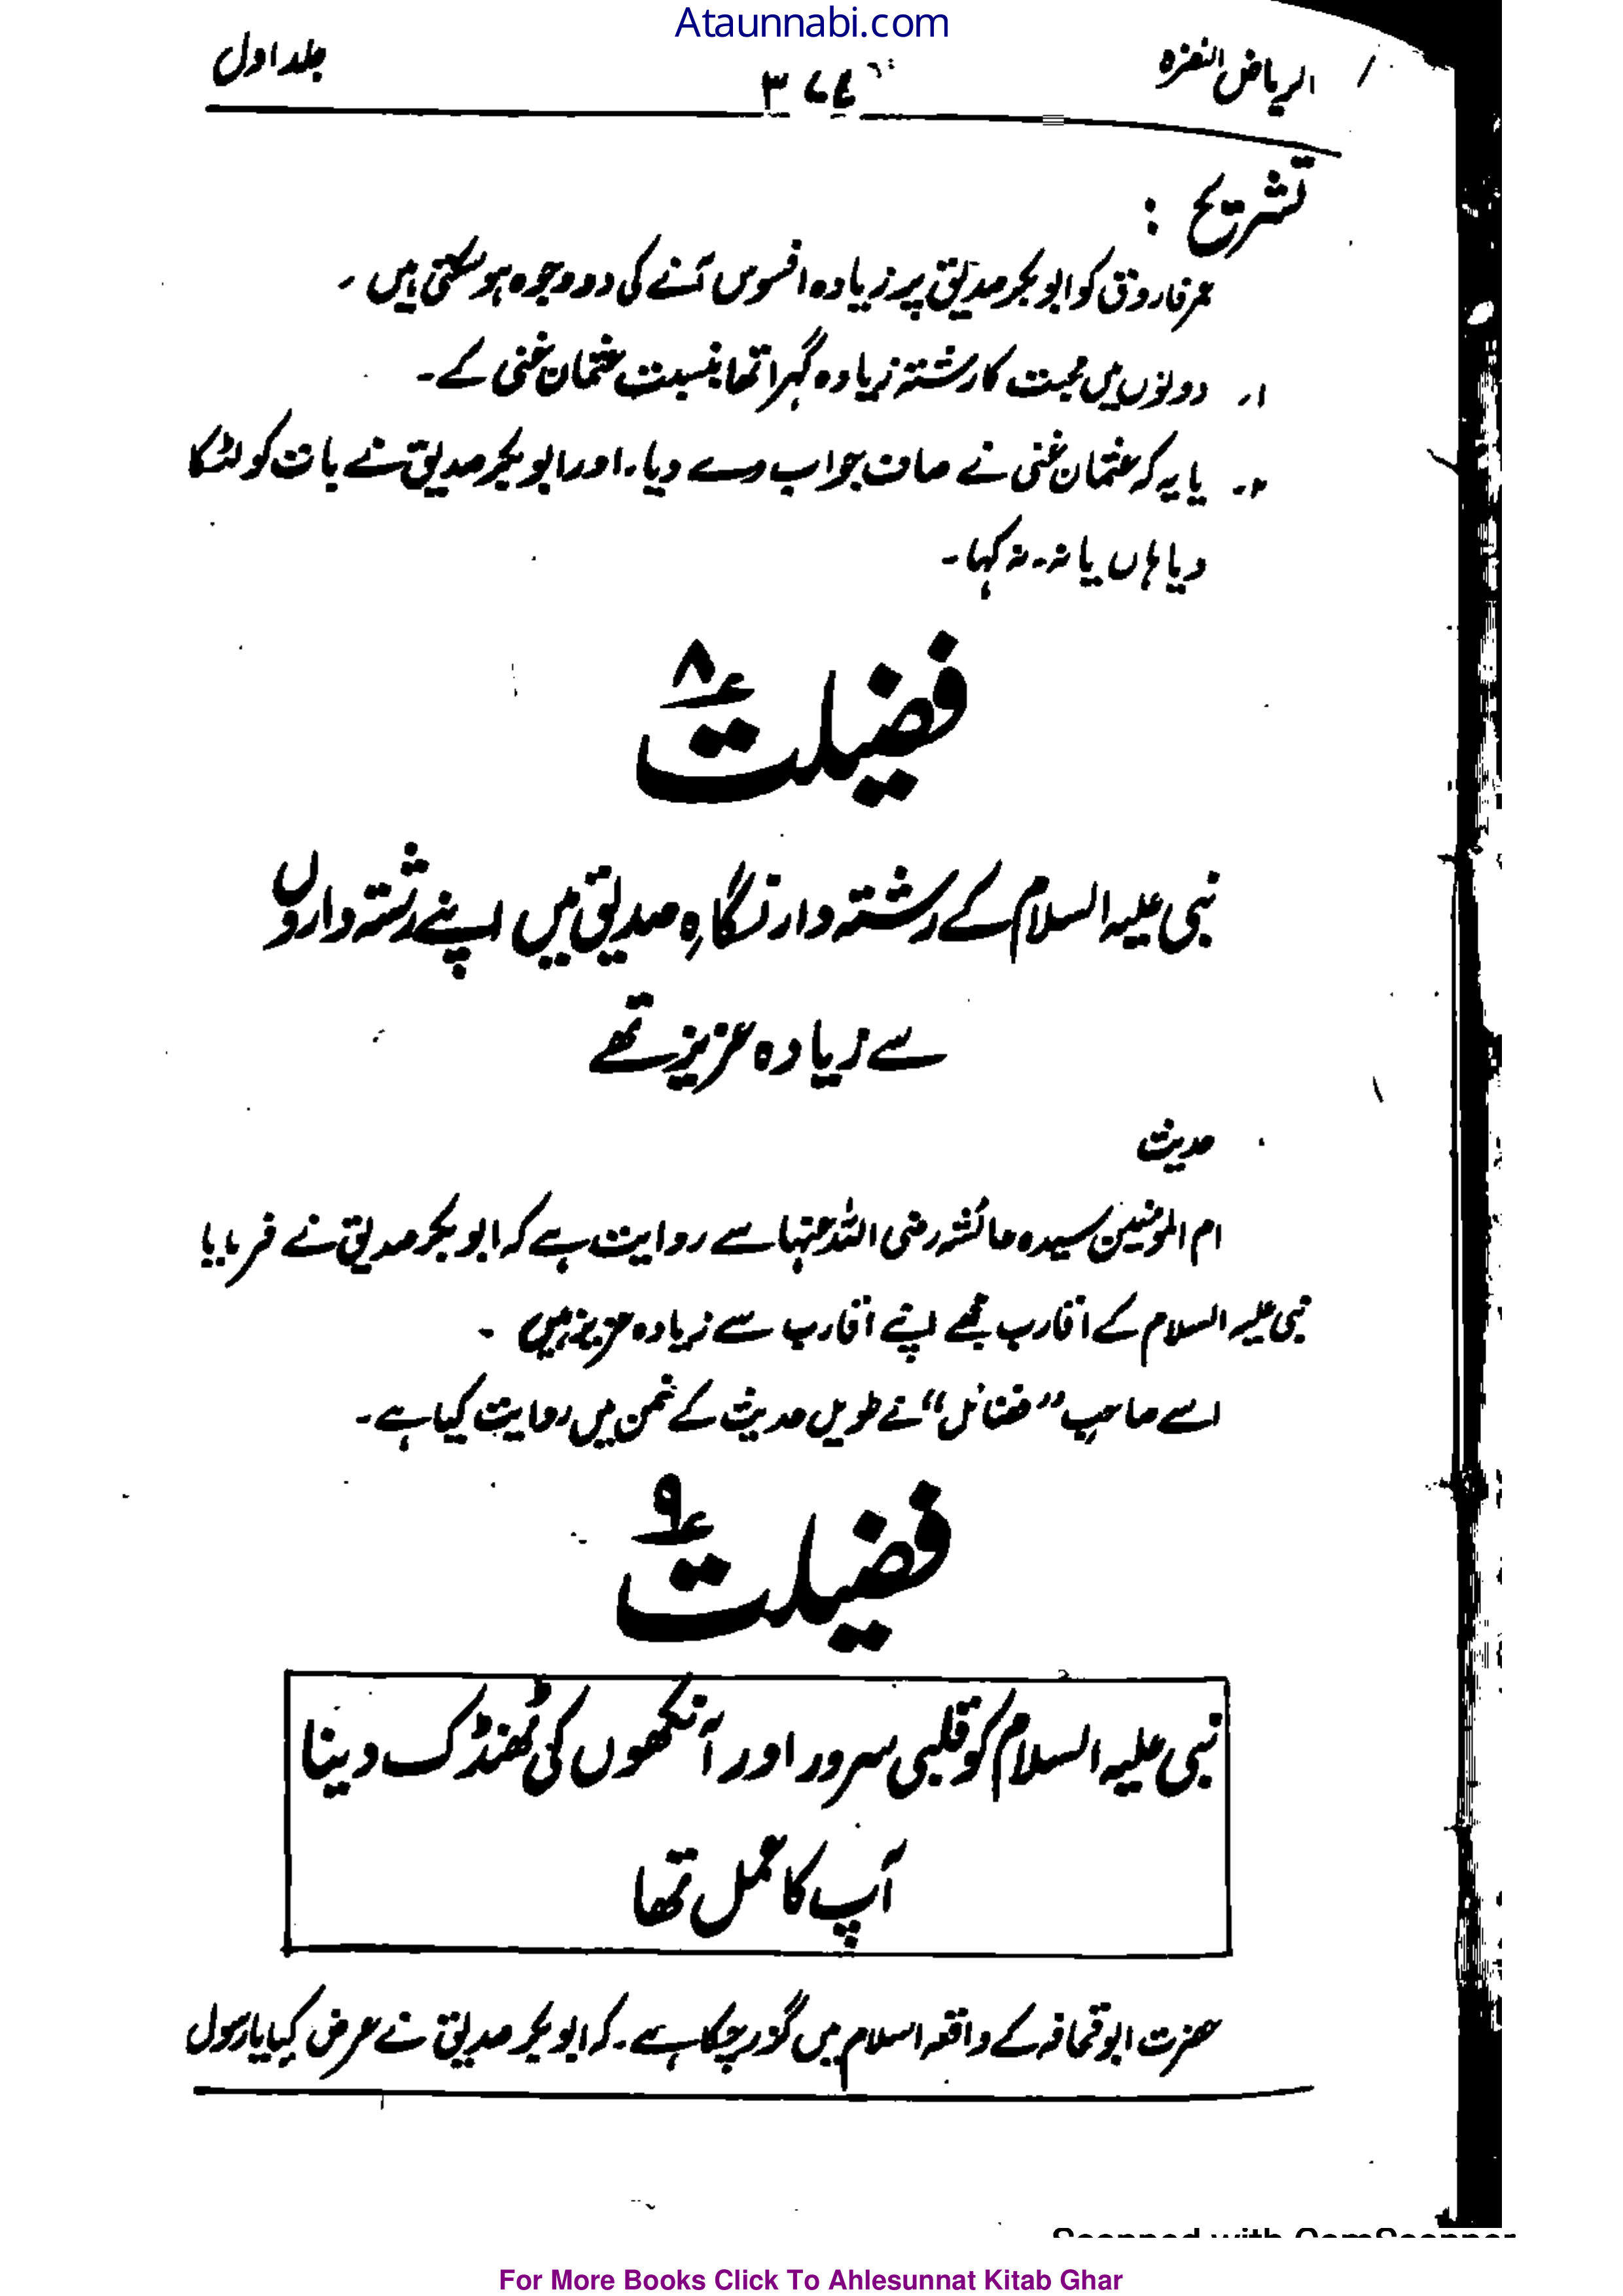 Ataunnabi.com
الریاض النضرہ
جلد اول
تشریح :
عمر فاروق کو ابو بکر صدیق پر زیادہ افسوس آنے کی دو وجوہ ہو سکتی ہیں ۔
۱۔ دونوں میں محبت کا رشتہ زیادہ گہرا تھا بنسبت عثمان غنی کے۔
۲۔ یا یہ کہ عثمان غنی نے صاف جواب دے دیا۔ اور ابو بکر صدیق نے بات کو لٹکا
دیا ہاں یا نہ۔ نہ کہا۔
فضیلت ۸
نبی علیہ السلام کے رشتہ دار نگاہِ صدیق میں اپنے رشتہ داروں
سے زیادہ عزیز تھے
حدیث
ام المومنین سیدہ عائشہ رضی اللہ عنہا سے روایت ہے کہ ابو بکر صدیق نے فرمایا
نبی علیہ السلام کے اقارب مجھے اپنے اقارب سے زیادہ عزیز ہیں ۔
اسے صاحب ”فضائل“ نے طویل حدیث کے ضمن میں روایت کیا ہے۔
فضیلت ۹
نبی علیہ السلام کو قلبی سرور اور آنکھوں کی ٹھنڈک دینا
آپ کا عمل تھا
حضرت ابو قحافہ کے واقعہ اسلام میں گزر چکا ہے۔ کہ ابو بکر صدیق نے عرض کیا یا رسول
Scanned with CamScanner
For More Books Click To Ahlesunnat Kitab Ghar